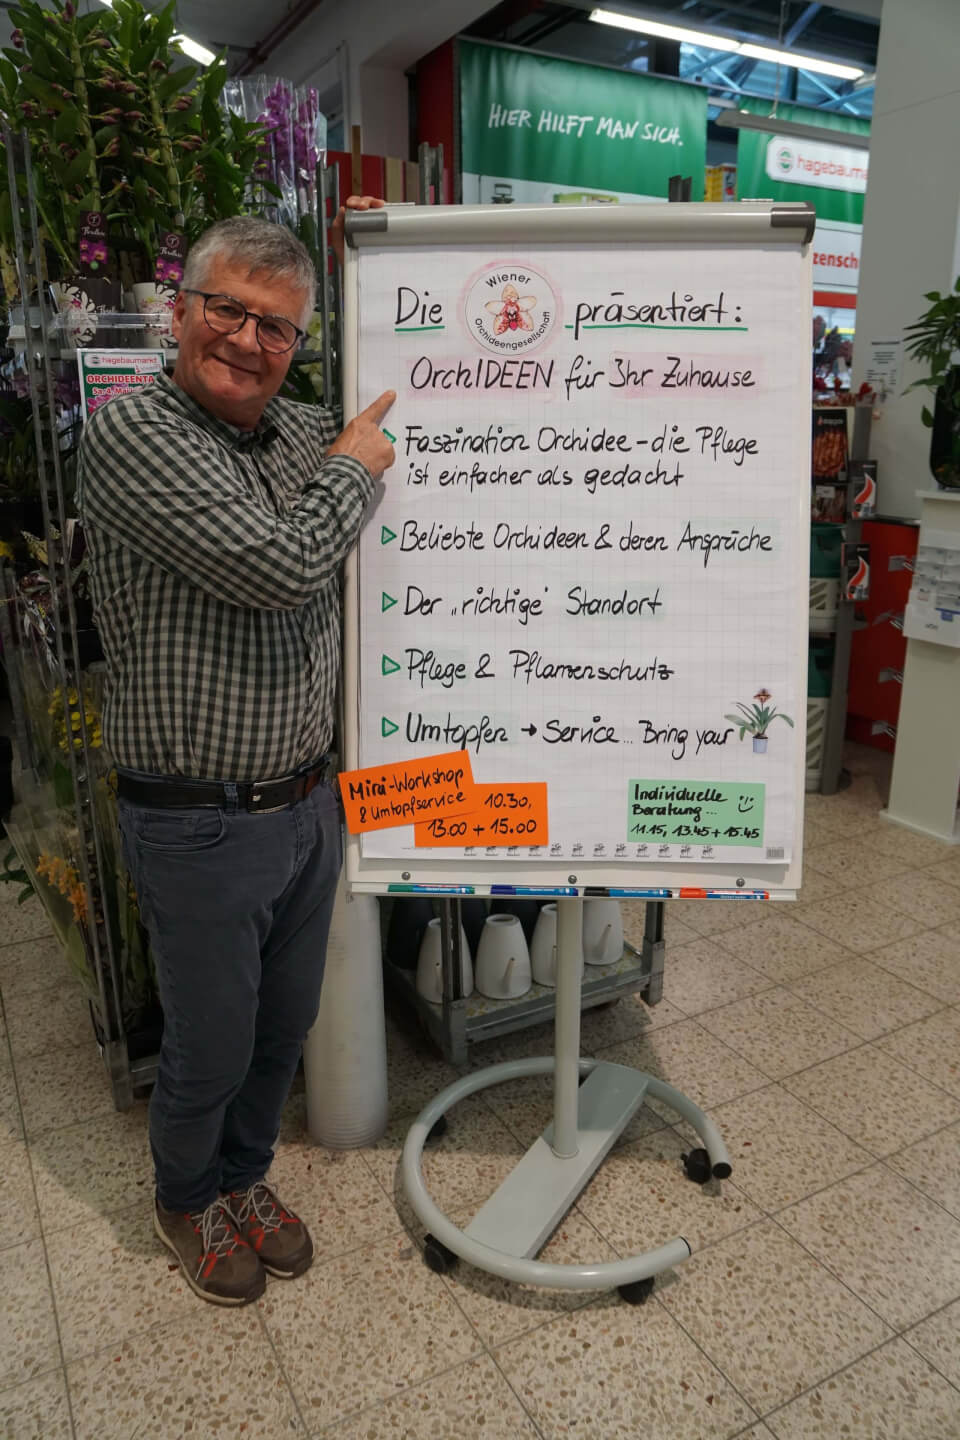 HIER HILFT MAN SICH.
hagebauma
zensch
Die
Wiener
Orchideengesellschaft
präsentiert:
OrchIDEEN für Ihr Zuhause
Faszination Orchidee - die Pflege
ist einfacher als gedacht
Beliebte Orchideen & deren Ansprüche
Der „richtige" Standort
Pflege & Pflanzenschutz
Umtopfen → Service... Bring your
Mini-Workshop
& Umtopfservice
10.30,
13.00 + 15.00
Individuelle
Beratung...
11.15, 13.45 + 15.45
hagebaumarkt
ORCHIDEENTA